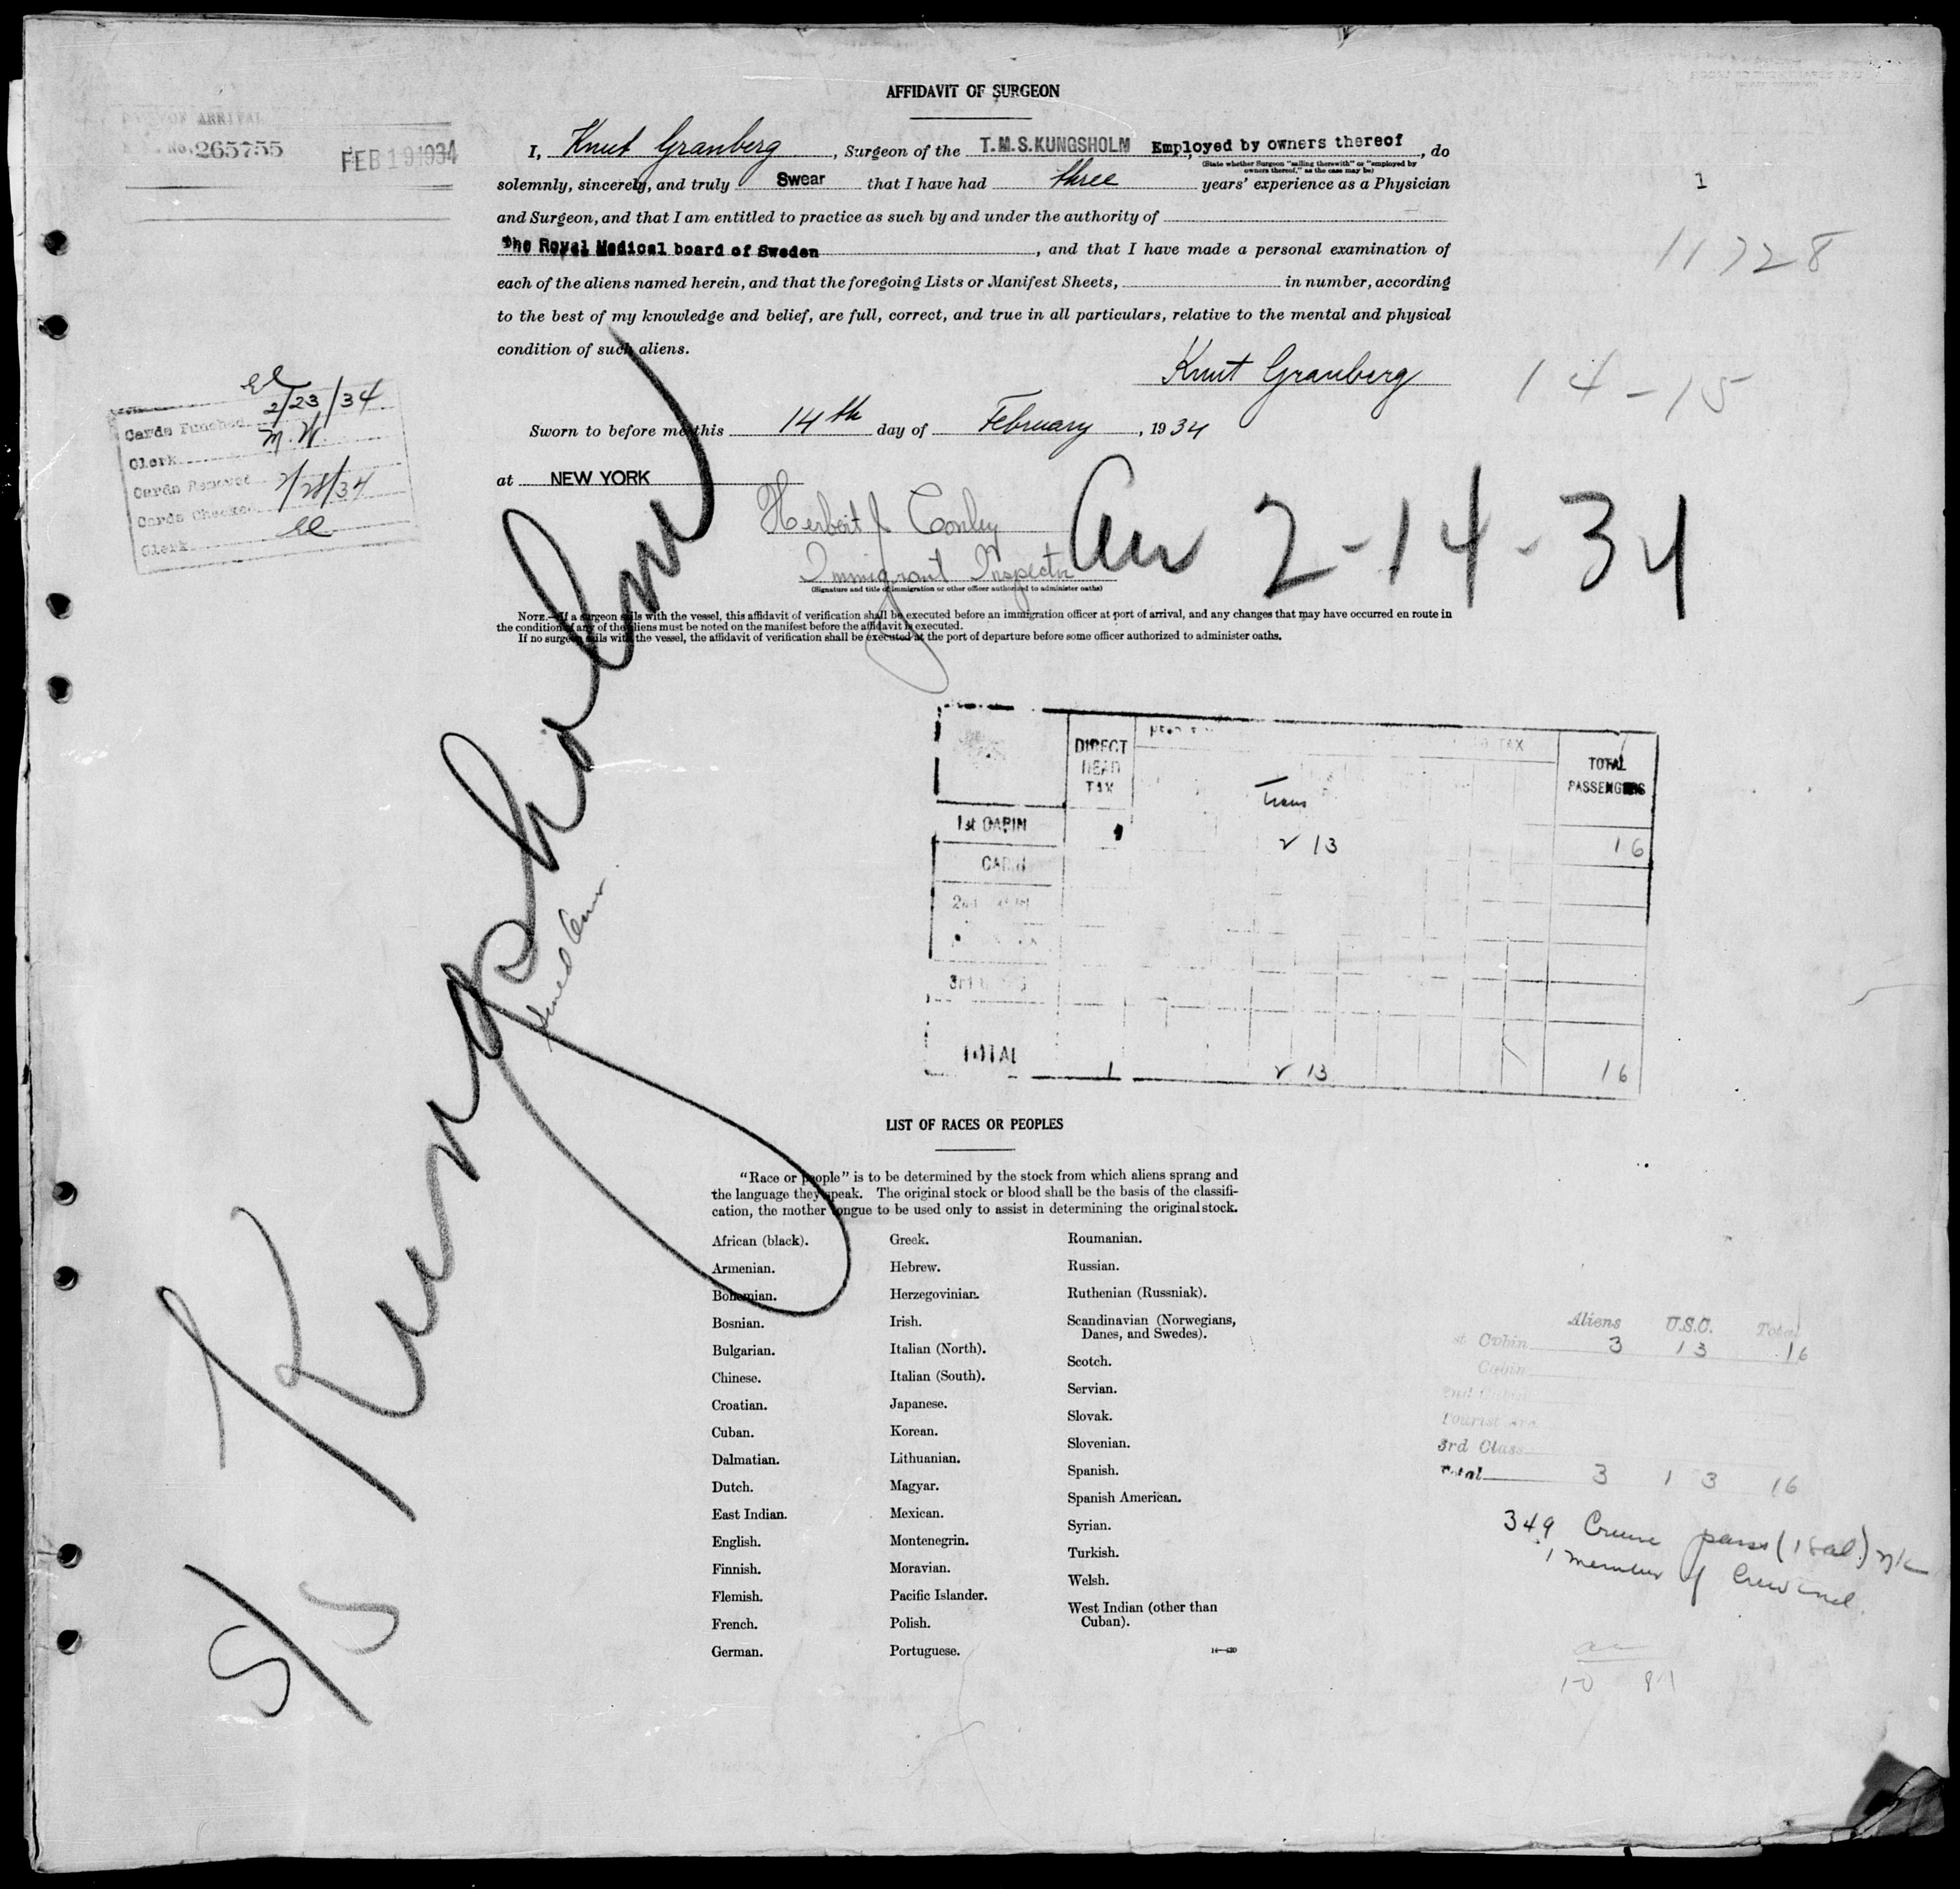 AFFIDAVIT OF SURGEON
OF ARRIVAL
No. 265755 FEB 19 1934
I, Knut Granberg, Surgeon of the T.M.S. KUNGSHOLM Employed by owners thereof, do
(State whether Surgeon "sailing therewith" or "employed by
owners thereof," as the case may be)
solemnly, sincerely, and truly Swear that I have had three years' experience as a Physician
1
and Surgeon, and that I am entitled to practice as such by and under the authority of
The Royal Medical board of Sweden, and that I have made a personal examination of
11728
each of the aliens named herein, and that the foregoing Lists or Manifest Sheets, in number, according
to the best of my knowledge and belief, are full, correct, and true in all particulars, relative to the mental and physical
condition of such aliens.
Knut Granberg
14-15
Sworn to before me this 14th day of February, 1934
at NEW YORK
Herbert J Conley
Immigrant Inspector
(Signature and title of immigration or other officer authorized to administer oaths)
Arr 2-14-34
Cards Punched 2/23/34
Clerk M.W.
Cards Removed 2/28/34
Cards Checked
Clerk
NOTE.—If a surgeon sails with the vessel, this affidavit of verification shall be executed before an immigration officer at port of arrival, and any changes that may have occurred en route in
the condition of any of the aliens must be noted on the manifest before the affidavit is executed.
If no surgeon sails with the vessel, the affidavit of verification shall be executed at the port of departure before some officer authorized to administer oaths.
S/S Kungsholm
DIRECT HEAD TAX
TAX
TOTAL PASSENGERS
Trans
1st CABIN 1 2 13 16
CABIN
TOTAL 1 2 13 16
LIST OF RACES OR PEOPLES
"Race or people" is to be determined by the stock from which aliens sprang and
the language they speak. The original stock or blood shall be the basis of the classifi-
cation, the mother tongue to be used only to assist in determining the original stock.
African (black).
Armenian.
Bohemian.
Bosnian.
Bulgarian.
Chinese.
Croatian.
Cuban.
Dalmatian.
Dutch.
East Indian.
English.
Finnish.
Flemish.
French.
German.
Greek.
Hebrew.
Herzegovinian.
Irish.
Italian (North).
Italian (South).
Japanese.
Korean.
Lithuanian.
Magyar.
Mexican.
Montenegrin.
Moravian.
Pacific Islander.
Polish.
Portuguese.
Roumanian.
Russian.
Ruthenian (Russniak).
Scandinavian (Norwegians,
Danes, and Swedes).
Scotch.
Servian.
Slovak.
Slovenian.
Spanish.
Spanish American.
Syrian.
Turkish.
Welsh.
West Indian (other than
Cuban).
Aliens U.S.C. Total
st Cabin 3 13 16
Cabin
2nd Cabin
Tourist
3rd Class
Total 3 13 16
349 Cruise pass
1 member of